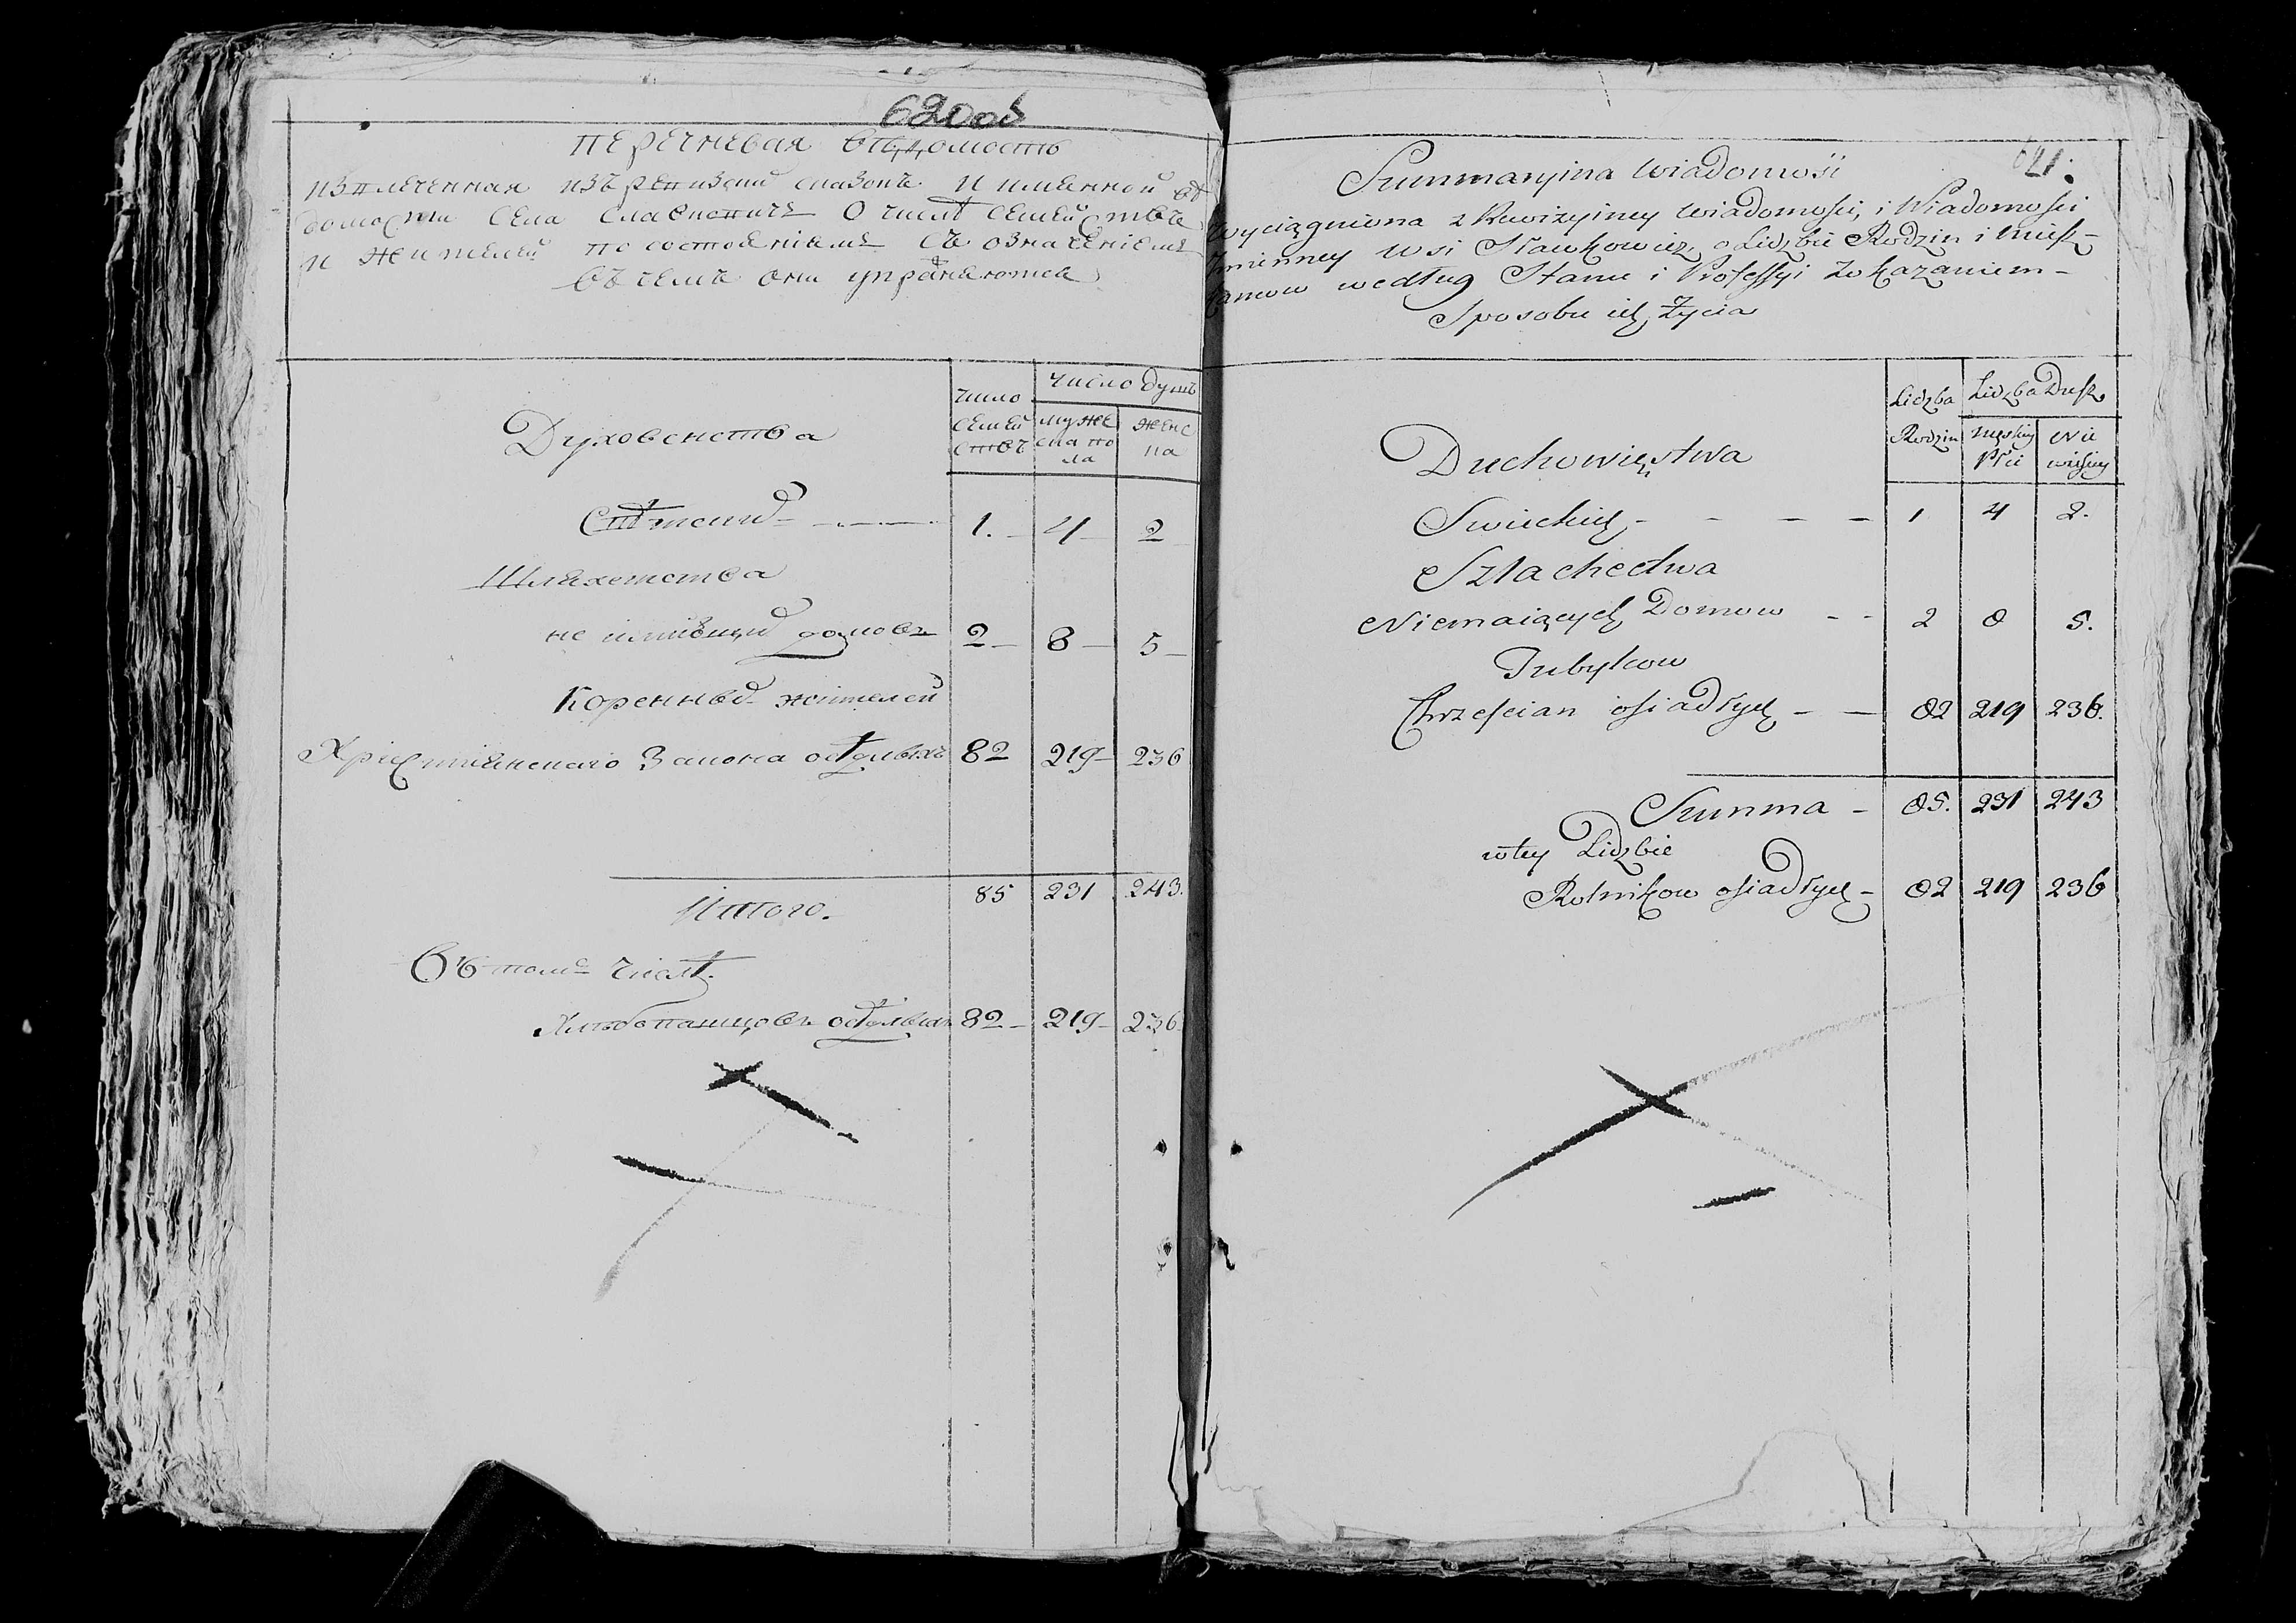 620об
перечневая вѣдомость
извлеченная изъ ревизской сказокъ и имянной вѣ
домости села Славковичъ о числѣ семействъ
и жителей по состоянiямъ съ означенiемъ
въ чемъ они упражняются
число число душъ
Духовенства семей муже женс
ствъ ска по ка
ла
Свѣтских 1. 4 2
Шляхетства
не имѣющих домовъ 2 8 5
Коренных жителей
Християнскаго Закона осѣдлыхъ 82 219 236
Итого. 85 231 243.
Въ томъ числѣ
Хлѣбопашцовъ осѣдлыхъ 82 219 236
621.
Summaryina wiadomość
Wyciągniona z Rewizyiney wiadomości, i Wiadomości
Imienney wsi Sławkowicz, o Lidzbie Rodzin i miesz-
kancow według Stanu i Professyi z okazaniem
Sposobu ich Życia
Lidzba Lidzba Dusz
Duchowięstwa Rodzin męskiey Nie
Płci wieściey
Swieckich 1 4 2.
Szlachectwa
Niemaiących Domow 2 8 5.
Tubylcow
Chrzescian osiadłych 82 219 236.
Summa 85. 231 243
w tey Lidzbie
Rolnikow osiadłych 82 219 236